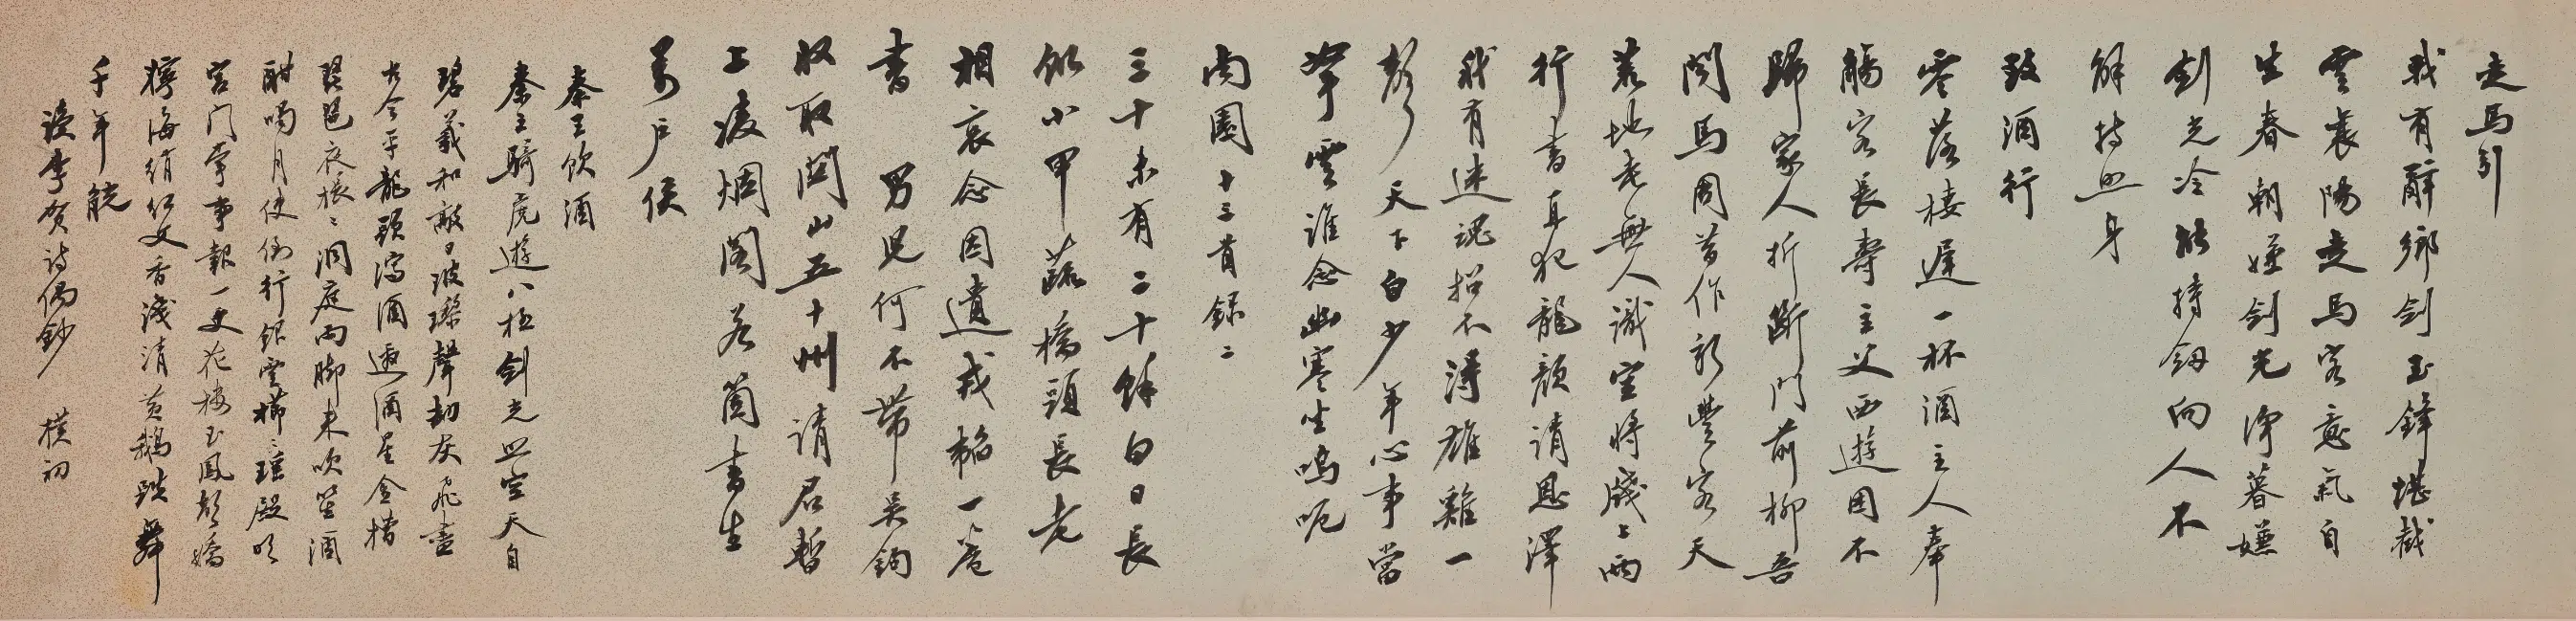 走馬引
我有辭鄉劍玉鋒堪截
雲襄陽走馬客意氣自
生春朝嫌劍光淨暮嫌
劍光冷能持劍向人不
解持照身
致酒行
零落棲遲一杯酒主人奉
觴客長壽主父西遊困不
歸家人折斷門前柳吾
聞馬周昔作新豐客天
荒地老無人識空將牋上兩
行書直犯龍顏請恩澤
我有迷魂招不得雄雞一
聲天下白少年心事當
拏雲誰念幽寒坐嗚呃
南園十三首録二
三十未有二十餘白日長
飢小甲蔬橋頭長老
相哀念因遺戎韜一卷
書 男兒何不帶吳鉤
收取關山五十州請君暫
上凌煙閣若箇書生
萬戶侯
秦王飲酒
秦王騎虎遊八極劍光照空天自
碧羲和敲日玻瓈聲劫灰飛盡
古今平龍頭瀉酒邀酒星金槽
琵琶夜棖棖洞庭雨腳來吹笙酒
酣喝月使倒行銀雲櫛櫛瑤殿明
宮门掌事報一更花樓玉鳳聲嬌
獰海綃紅文香淺清黃鵝跌舞
千年觥
讀李賀詩偶鈔 樸初